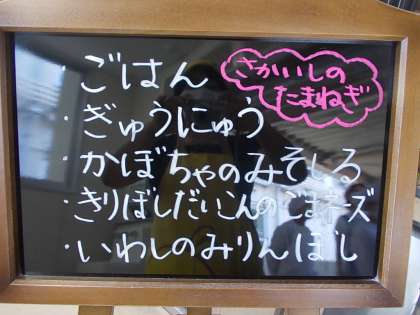 ・ごはん
さかいしの
たまねぎ
・ぎゅうにゅう
・かぼちゃのみそしる
・きりぼしだいこんのごまチーズ
・いわしのみりんぼし